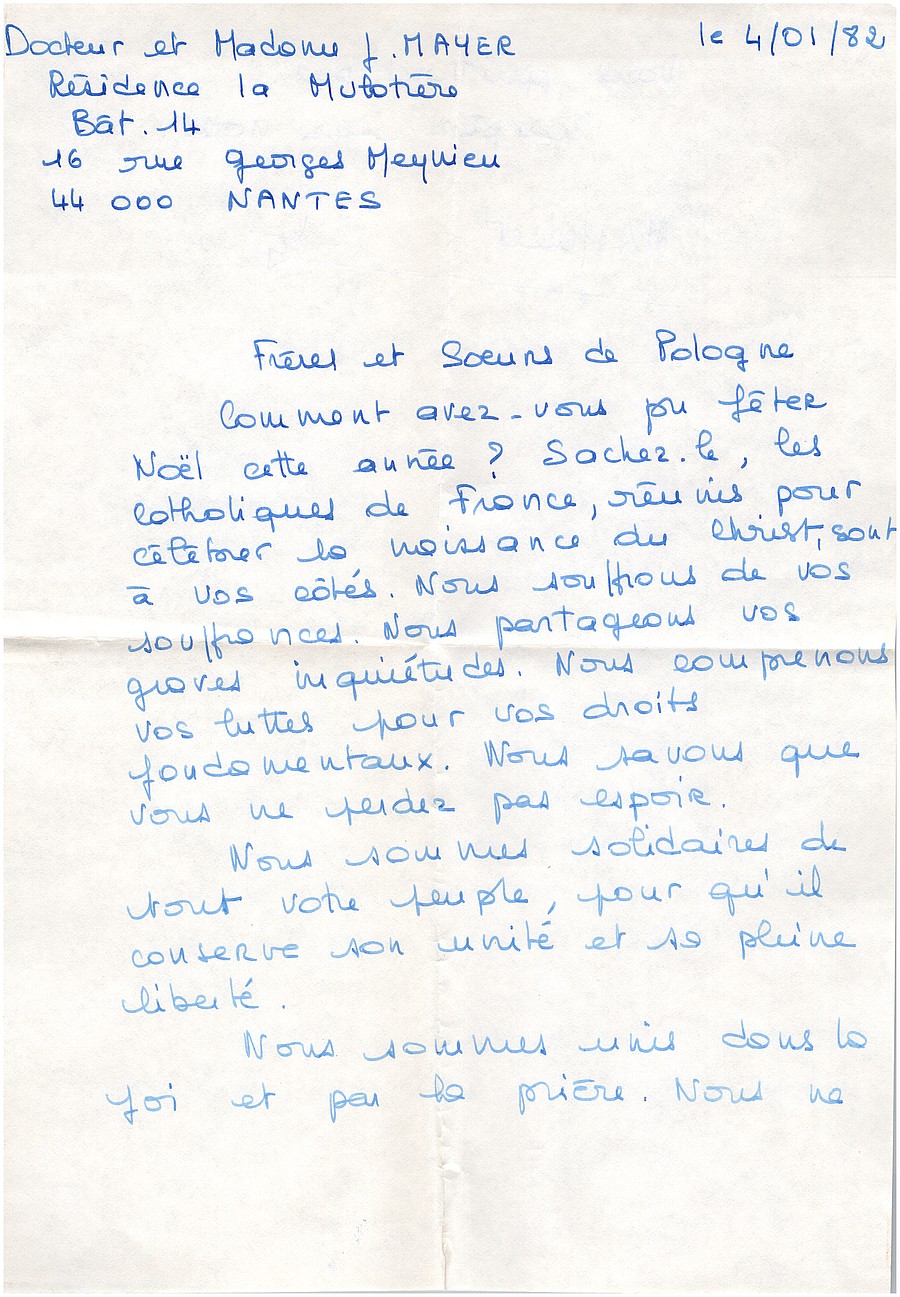 Docteur et Madame J. MAYER
le 4/01/82
Résidence la Mulotière
Bât. 14
16 rue Georges Meynieu
44 000 NANTES
Frères et Soeurs de Pologne
Comment avez-vous pu fêter
Noël cette année ? Sachez-le, les
catholiques de France, réunis pour
célébrer la naissance du Christ, sont
à vos côtés. Nous souffrons de vos
souffrances. Nous partageons vos
graves inquiétudes. Nous comprenons
vos luttes pour vos droits
fondamentaux. Nous savons que
vous ne perdez pas espoir.
Nous sommes solidaires de
tout votre peuple, pour qu'il
conserve son unité et sa pleine
liberté.
Nous sommes unis dans la
foi et par la prière. Nous ne